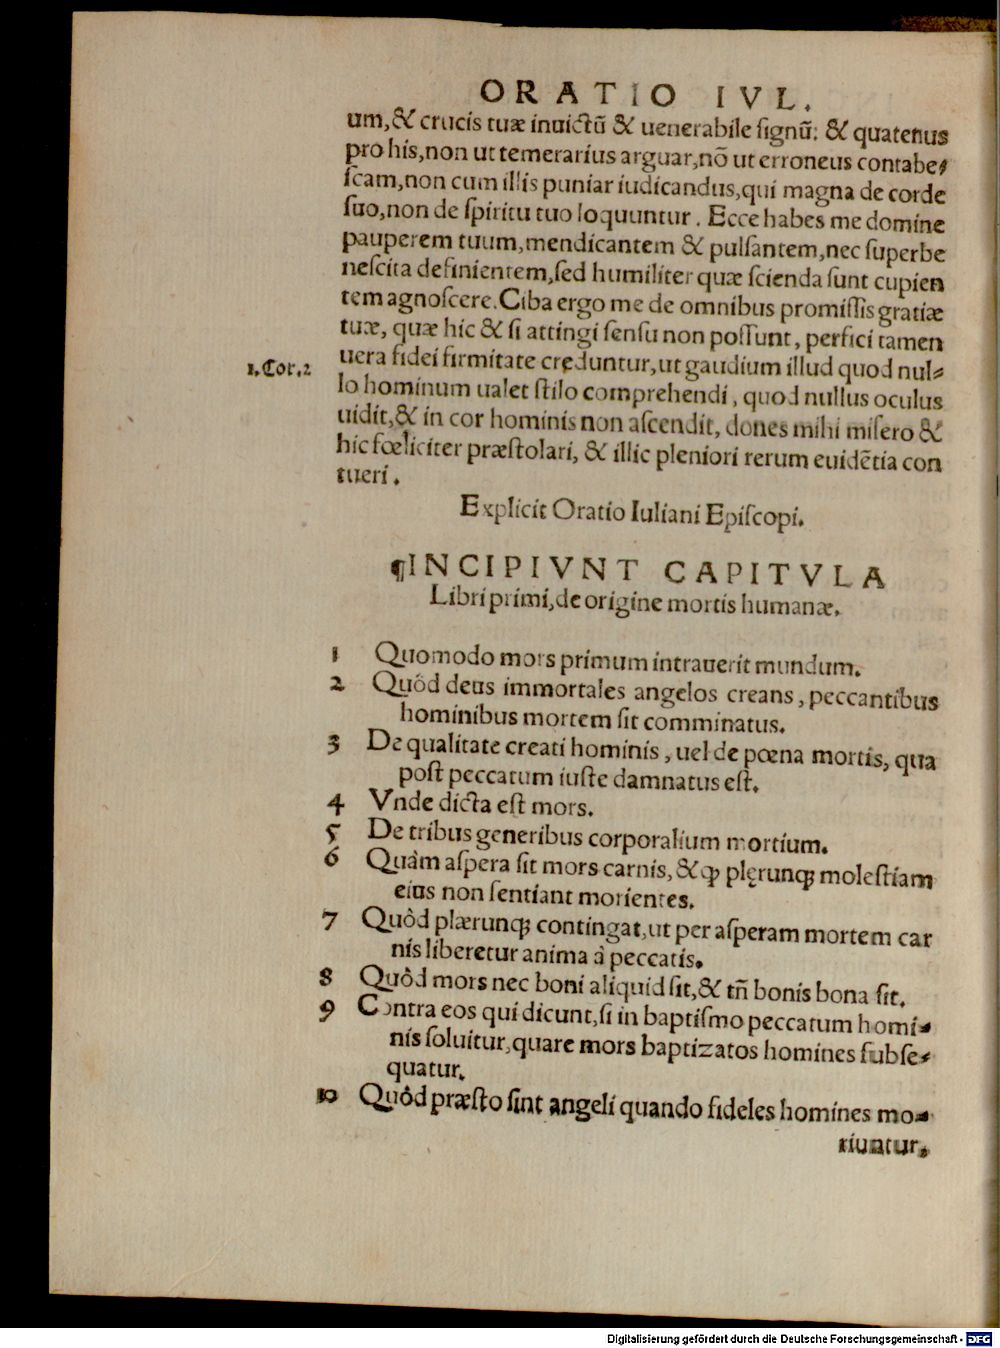 ORATIO IVL.
um,& crucis tuæ inuictũ & uenerabile ſignũ: & quatenus
pro his,non ut temerarius arguar,nõ ut erroneus contabe⸗
ſcam,non cum illis puniar iudicandus,qui magna de corde
ſuo,non de ſpiritu tuo loquuntur. Ecce habes me domine
pauperem tuum,mendicantem & pulſantem,nec ſuperbe
neſcita definientem,ſed humiliter quæ ſcienda ſunt cupien
tem agnoſcere.Ciba ergo me de omnibus promiſſis gratiæ
tuæ, quæ hic & ſi attingi ſenſu non poſſunt, perfici tamen
uera fidei firmitate creduntur,ut gaudium illud quod nul⸗
1.Cor.2
lo hominum ualet ſtilo comprehendi, quod nullus oculus
uidit,& in cor hominis non aſcendit, dones mihi miſero &
hic fœliciter præſtolari, & illic pleniori rerum euidẽtia con
tueri.
Explicit Oratio Iuliani Epiſcopi.
¶INCIPIVNT CAPITVLA
Libri primi,de origine mortis humanæ.
1 Quomodo mors primum intrauerit mundum.
2 Quôd deus immortales angelos creans, peccantibus
hominibus mortem ſit comminatus.
3 De qualitate creati hominis, uel de pœna mortis, qua
poſt peccatum iuſte damnatus eſt.
4 Vnde dicta eſt mors.
5 De tribus generibus corporalium mortium.
6 Quàm aſpera ſit mors carnis, &ꝙ plęrunqꝫ moleſtiam
eius non ſentiant morientes.
7 Quôd plærunqꝫ contingat,ut per aſperam mortem car
nis liberetur anima à peccatis.
8 Quôd mors nec boni aliquid ſit,& tñ bonis bona ſit.
9 Contra eos qui dicunt,ſi in baptiſmo peccatum homi⸗
nis ſoluitur,quare mors baptizatos homines ſubſe⸗
quatur.
10 Quôd præſto ſint angeli quando fideles homines mo⸗
riuntur.
Digitalisierung gefördert durch die Deutsche Forschungsgemeinschaft - DFG